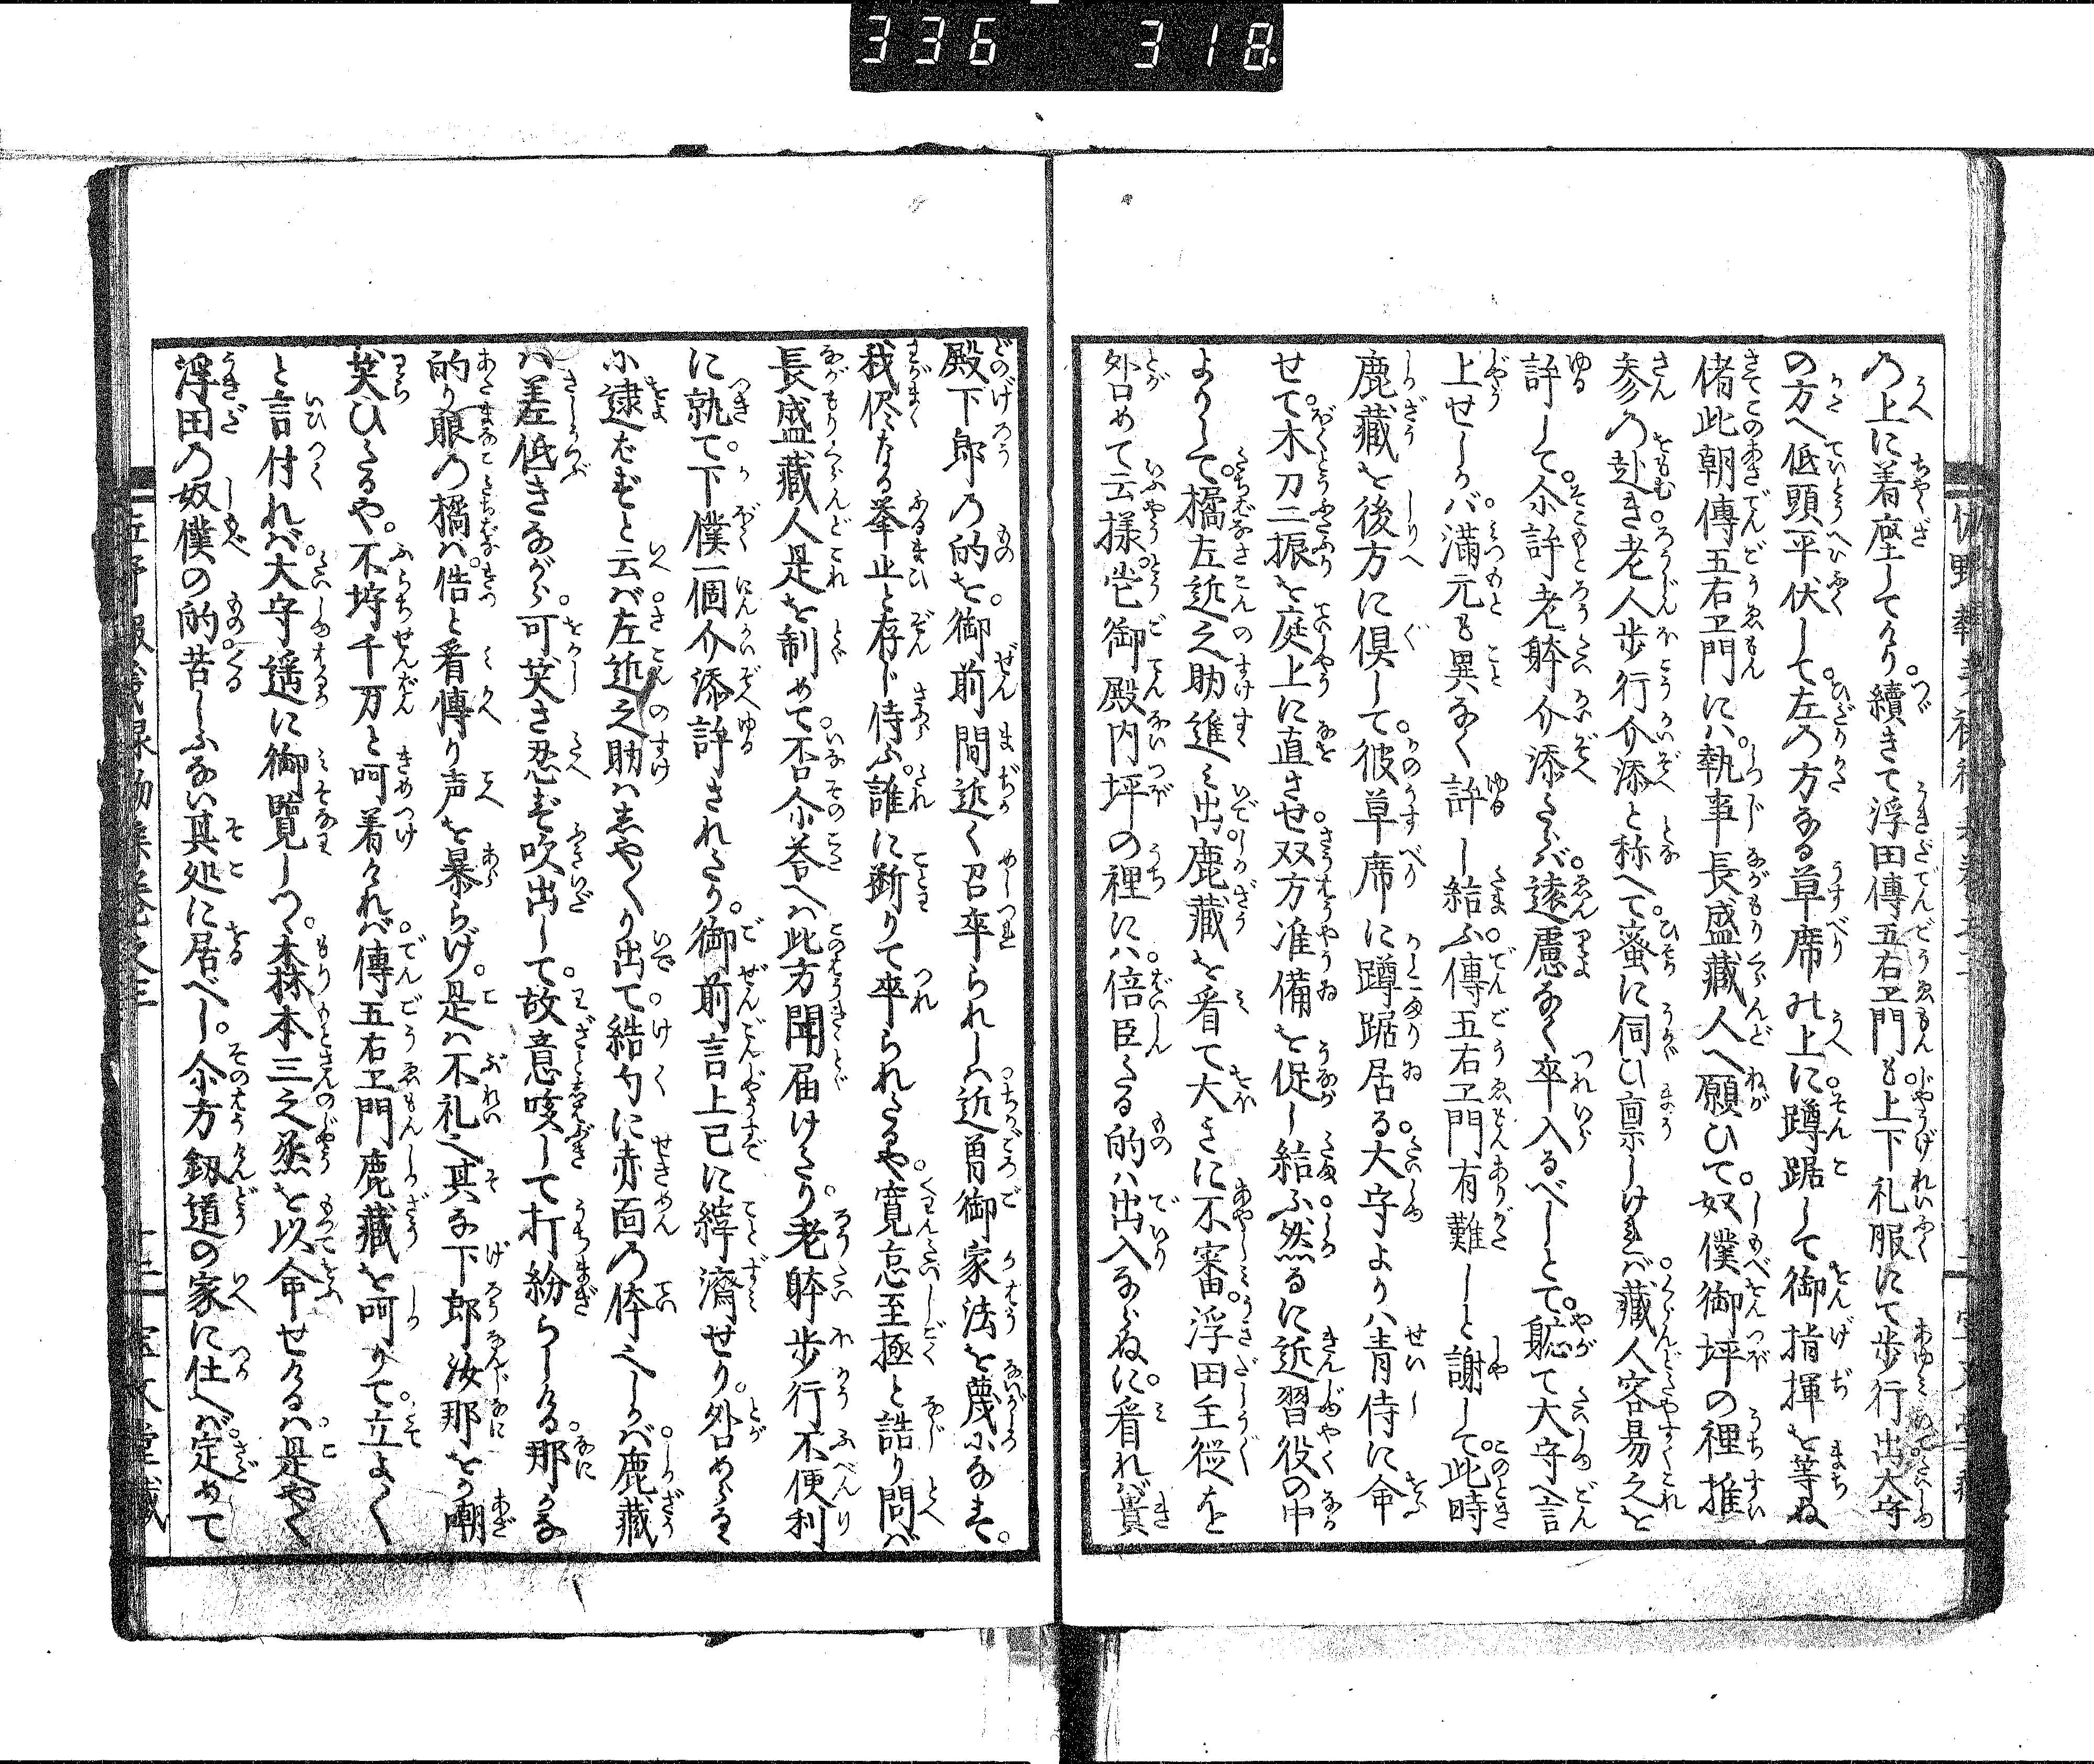 336 318
乃上に着座してけり。續きて浮田傳五右エ門も。上下礼服にて歩行出。大守
の方へ低頭平伏して。左の方なる草席の上に。蹲踞して御指揮を等ぬ
偖此朝傳五右エ門には。執事長盛藏人へ願ひて。奴僕御坪の裡推
参の赴き。老人歩行介添と称へて。蜜に伺ひ禀しければ。藏人容易之を
許して。尒許老躰介添ならば。遠慮なく卒入るべしとて。軈て大守へ言
上せしかば。満元も異なく許し給ふ。傳五右エ門有難しと謝して。此時
鹿藏を後方に倶して。彼草席に蹲踞居る。大守よりは青侍に命
せて。木刀二振を庭上に直させ。双方准備を促し給ふ。然るに近習役の中
よりして。橘左近之助進み出。鹿藏を看て大きに不審。浮田主從を
外めて云樣。御殿内坪の裡には。倍臣たる的は出入ならぬに。看れば貴
殿下郎の的を。御前間近く召卒られしは。近曽御家法を蔑になす。
我侭なる挙止と存じ侍ふ。誰に断りて卒られたるや。寛怠至極と詰り問ば
長盛藏人是を制めて。否尒荅へは此方聞届けたり。老躰歩行不便利
に執て。下僕一個介添許されたり。御前言上已に縡濟せり。外めらるゝ
に逮ばずと云ば。左近之助はしやくり出て。結句に赤面の体へしかば。鹿藏
は差低きながら。可笑さ忍ず吹出して。故意咳して打紛らしける。那
的り眼の橘は。倩と看傳り声を暴らげ。是は不礼之其な下郎。汝那をか嘲
笑ひたるや。不埒千万と呵着ければ。傳五右エ門鹿藏を呵りて。立よく
と言付れば。大守遥に御覧しつゝ。森本三之烝を以命せけるは。是やく
浮田の奴僕の的。苦しふない其処に居べし。尒方釼道の家に仕へば。定めて